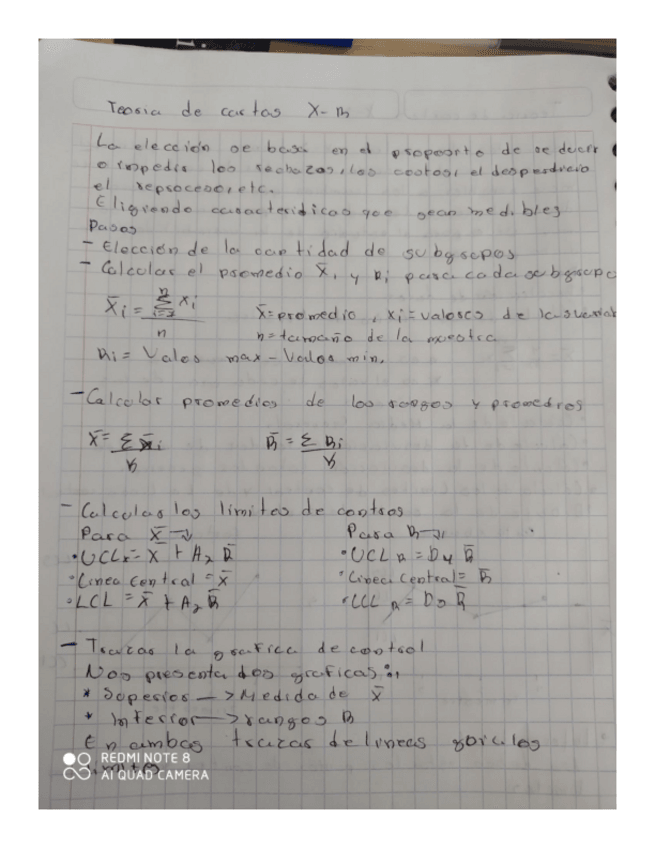 Teoria de cartas X-R
La elección se basa en el proposito de
o impedir los rechazos, los costos, el desperdicio
el reproceso, etc.
Eligiendo caracteristicas que sean medibles
Pasos
- Elección de la cantidad de subgrupos
- Calcular el promedio X̄i y Ri para cada subgrupo
X̄i = Σ(i=1, n) xi / n    X̄=promedio, xi=valores de la
n=tamaño de la muestra
Ri = Valor max - Valor min.
- Calcular promedios de los rangos y promedios
X̄ = Σ X̄i / k    R̄ = Σ Ri / k
- Calcular los limites de control
Para X̄ →    Para R →
• UCLx = X̄ + A2 R̄    • UCL R = D4 R̄
• Linea central = X̄    • Linea central = R̄
• LCL = X̄ + A2 R̄    • LCL R = D3 R̄
- Trazar la grafica de control
Nos presenta dos graficas:
* Superior -> Medida de X̄
* Inferior -> rangos R
En ambas trazar de lineas los
limites
REDMI NOTE 8
AI QUAD CAMERA